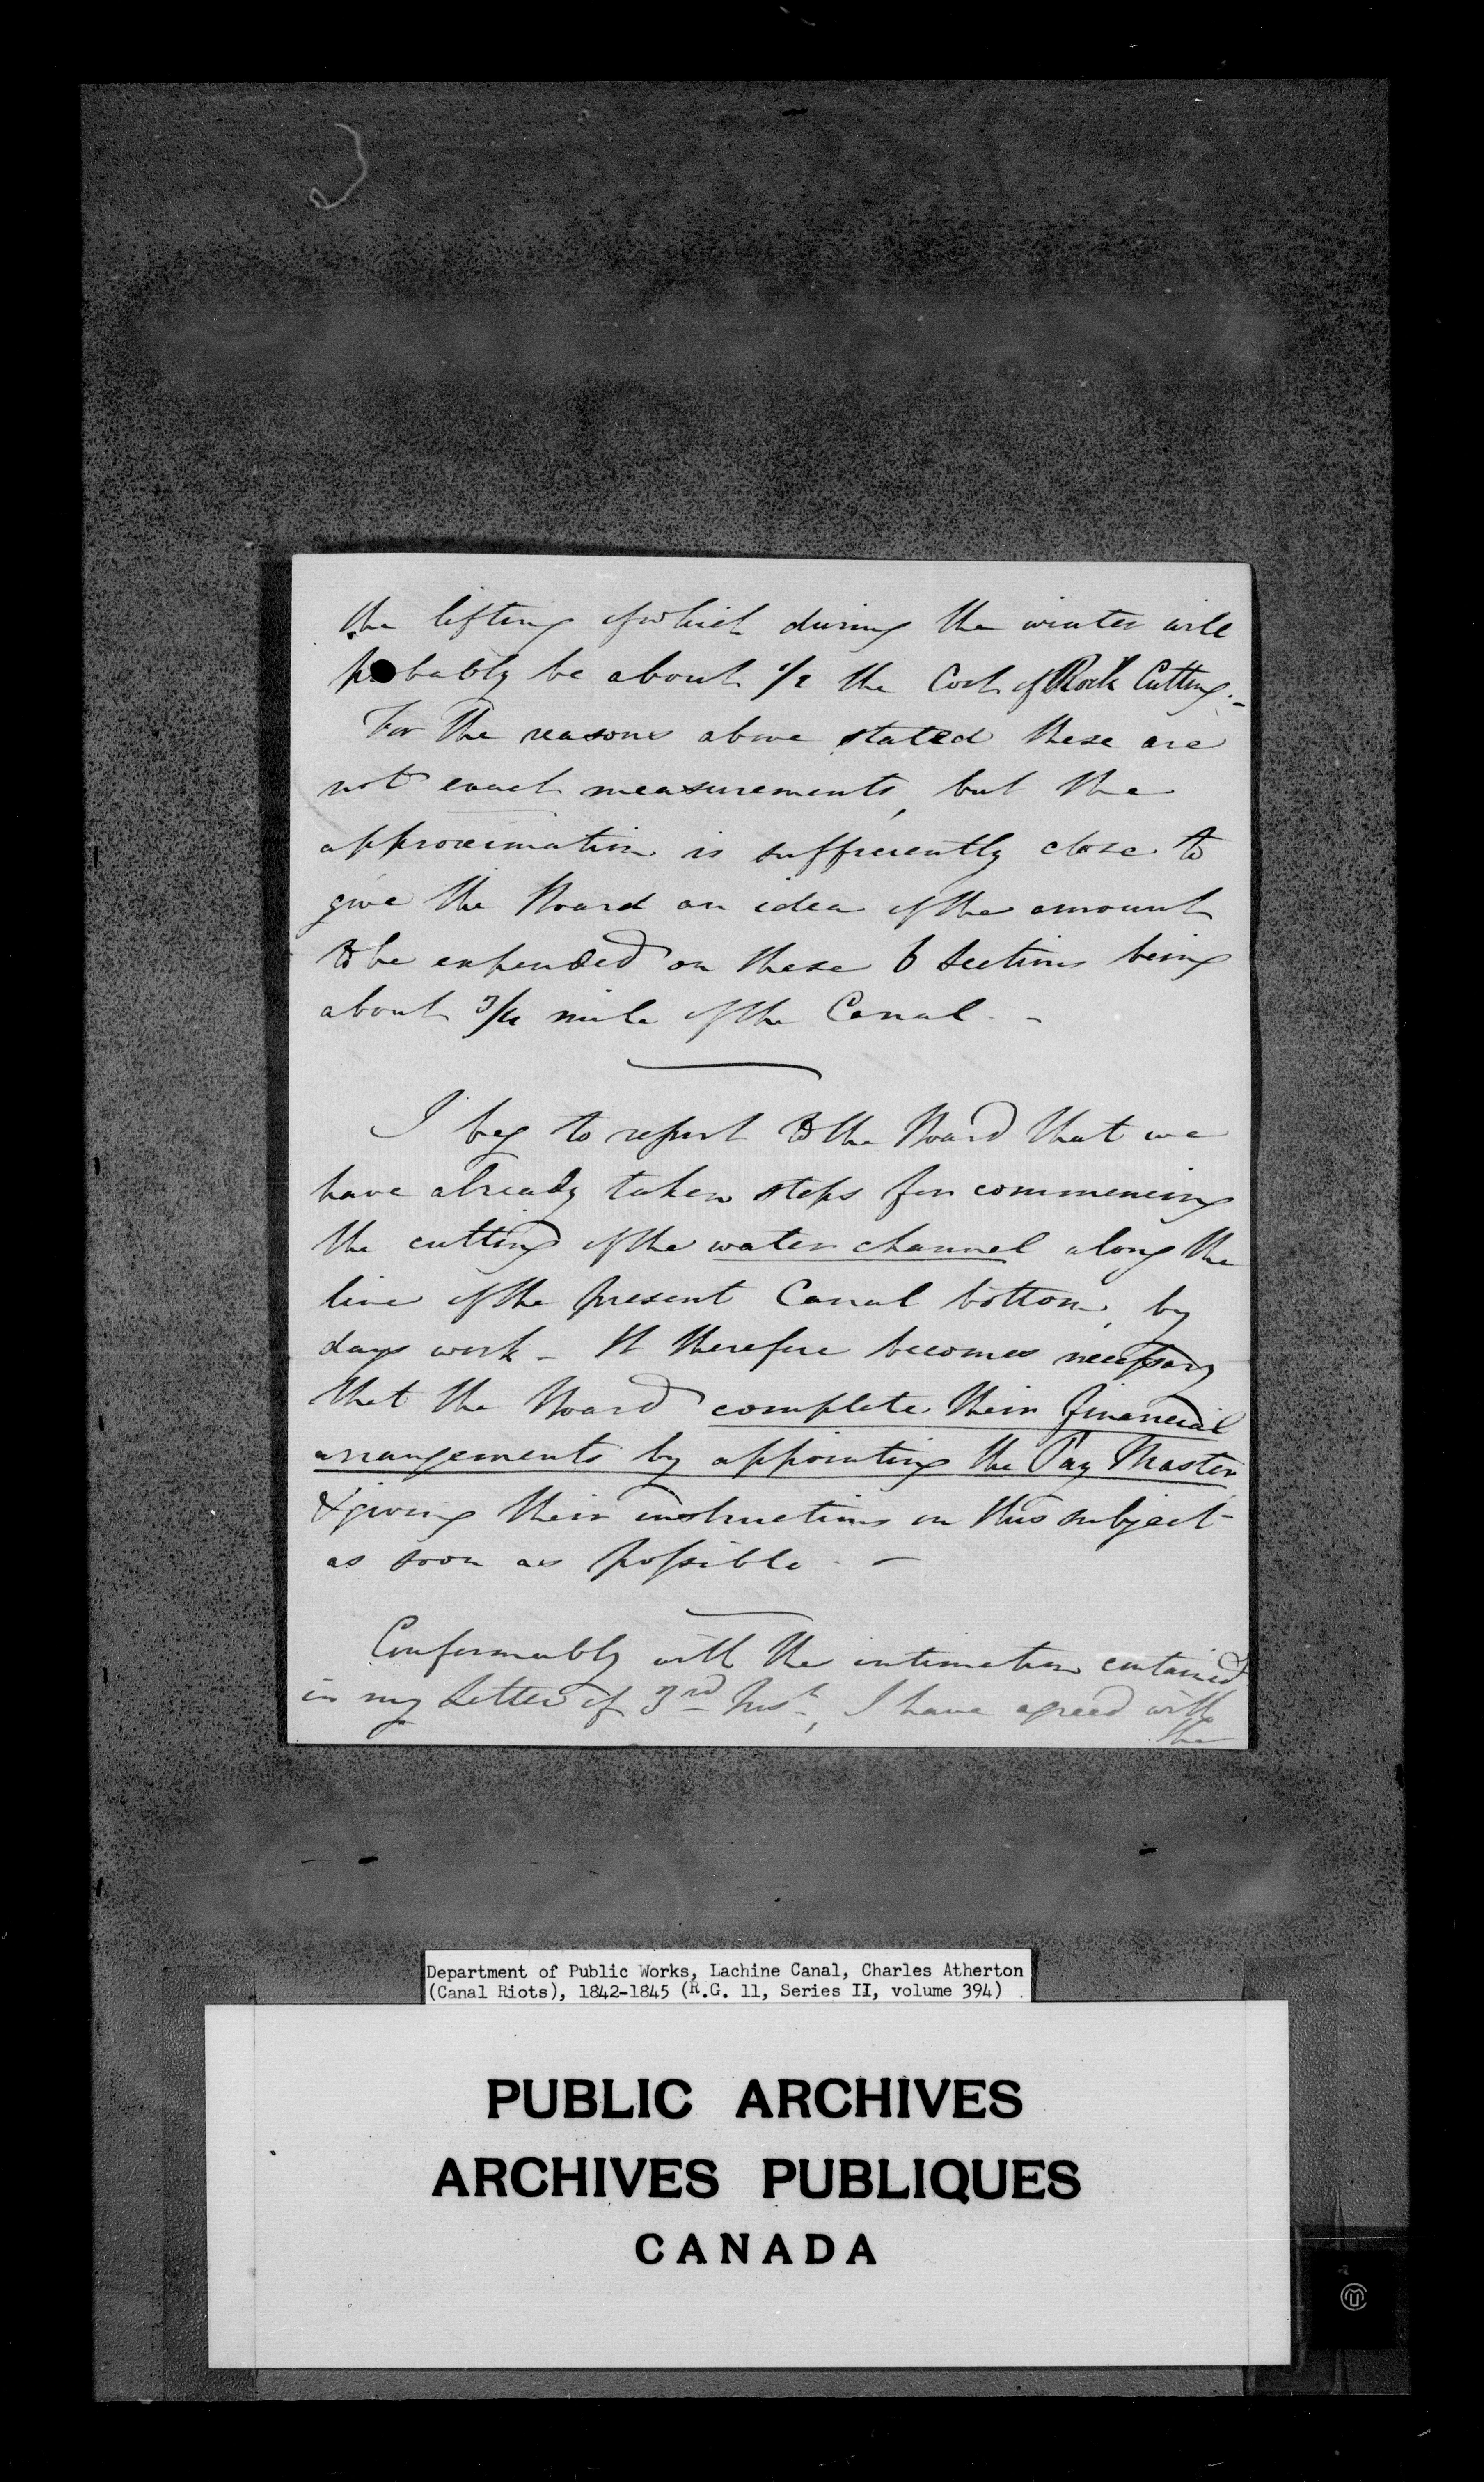 the lifting of which during the winter will
probably be about 1/2 the Cost of Rock Cutting.-
For the reasons above stated these are
not exact measurements, but the
approximation is sufficiently close to
give the Board an idea of the amount
to be expended on these 6 Sections being
about 3/4 mile of the Canal. -
I beg to report to the Board that we
have already taken steps for commencing
the cutting of the water channel along the
line of the present Canal bottom, by
days work - It therefore becomes necessary
that the Board complete their financial
arrangements by appointing the Pay Master,
& giving their instructions on this subject
as soon as possible. -
Conformably with the intimation contained
in my Letter of 3rd Inst, I have agreed with
the
Department of Public Works, Lachine Canal, Charles Atherton
(Canal Riots), 1842-1845 (R.G. 11, Series II, volume 394)
PUBLIC ARCHIVES
ARCHIVES PUBLIQUES
CANADA